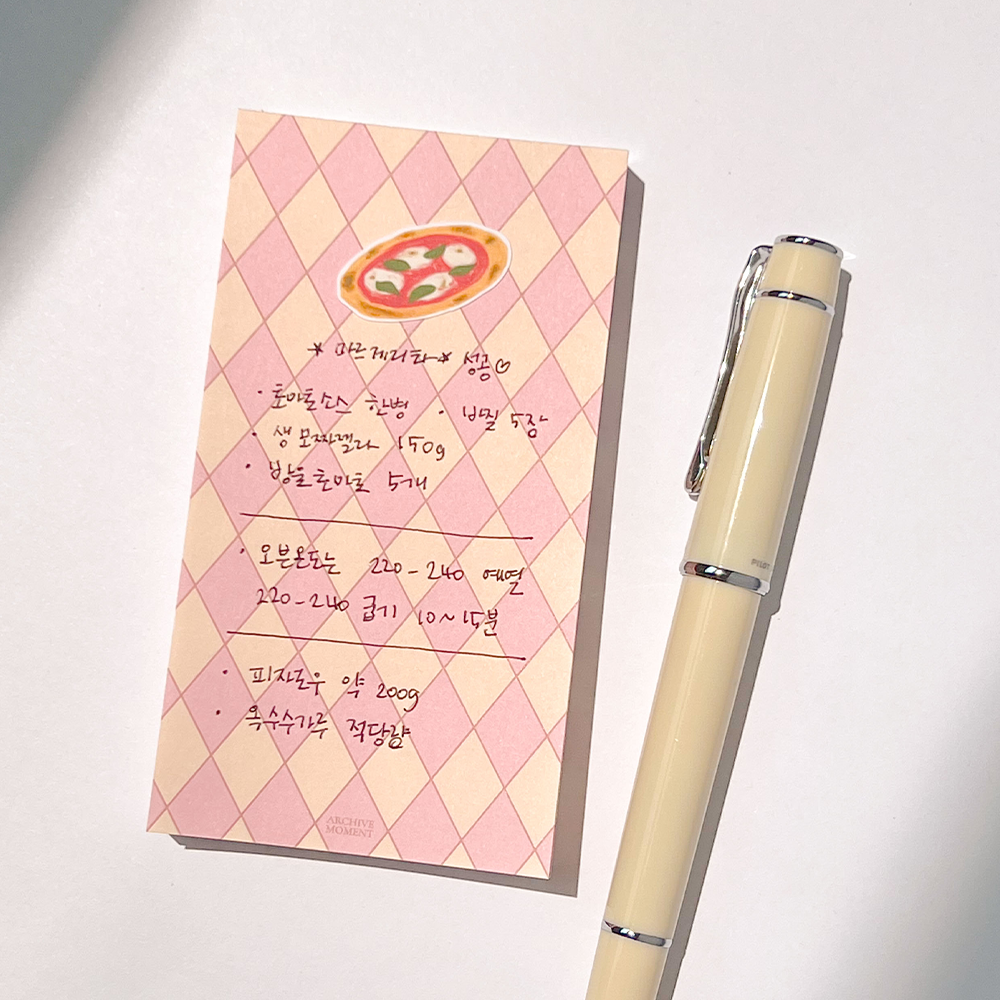 * 마르게리타 * 성공♡
· 토마토소스 한병 · 바질 5장
· 생 모짜렐라 150g
· 방울토마토 5개
· 오븐온도는 220-240 예열
220-240 굽기 10~15분
· 피자도우 약 200g
· 옥수수가루 적당량
ARCHIVE
MOMENT
PILOT